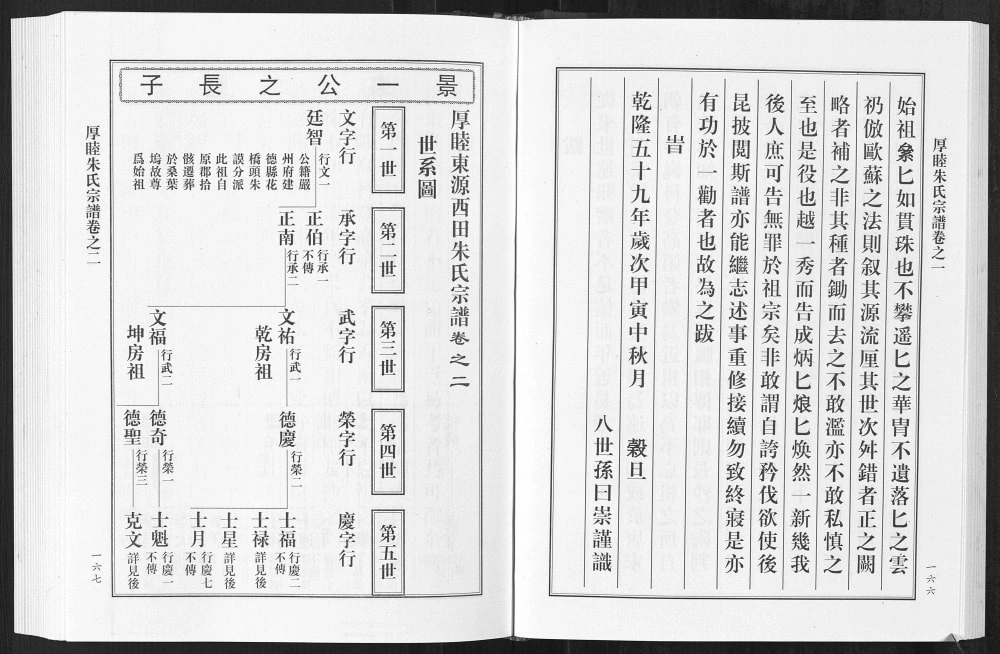 厚睦朱氏宗譜卷之一
始祖纍匕如貫珠也不攀遥匕之華冑不遺落匕之雲
礽倣歐蘇之法則叙其源流厘其世次舛錯者正之闕
略者補之非其種者鋤而去之不敢濫亦不敢私慎之
至也是役也越一秀而告成炳匕烺匕煥然一新幾我
後人庶可告無罪於祖宗矣非敢謂自誇矜伐欲使後
昆披閲斯譜亦能繼志述事重修接續勿致終寢是亦
有功於一勸者也故為之跋
旹
乾隆五十九年歲次甲寅中秋月 穀旦
八世孫曰崇謹識
一六六
景一公之長子
厚睦東源西田朱氏宗譜卷之二
世系圖
第一世
第二世
第三世
第四世
第五世
文字行
承字行
武字行
榮字行
慶字行
廷智
行文一
公籍嚴
州府建
德縣花
橋頭朱
謨分派
此祖自
原郡拾
骸遷葬
於桑葉
塢故尊
爲始祖
正伯
行承一
不傳
正南
行承二
文祐
行武一
乾房祖
文福
行武二
坤房祖
德慶
行榮二
德奇
行榮一
德聖
行榮三
士福
行慶二
不傳
士禄
詳見後
士星
詳見後
士月
行慶七
不傳
士魁
行慶一
不傳
克文
詳見後
厚睦朱氏宗譜卷之二
一六七